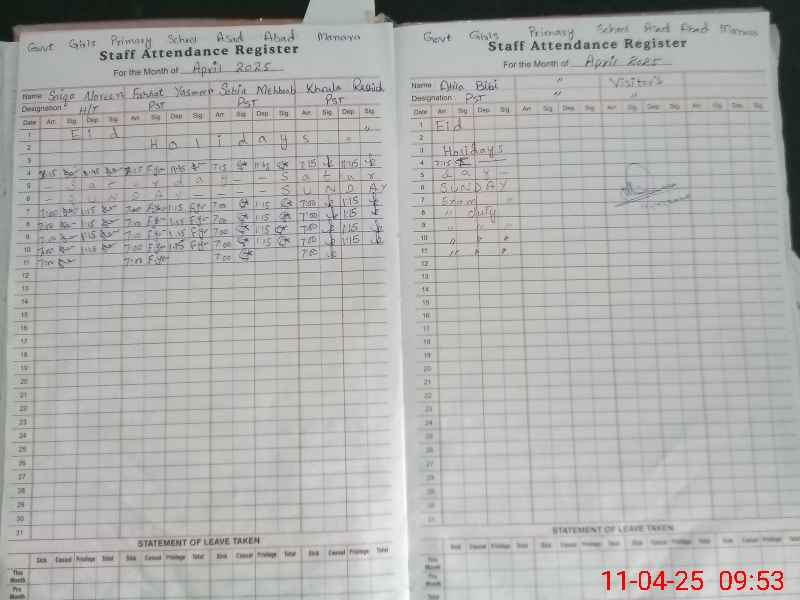 Govt Girls Primary School Asad Abad Manara
Staff Attendance Register
For the Month of April 2025
Name Saiqa Noreen Farhat Yasmeen Sobia Mehboob Khaula Rashid
Designation H/T PST PST PST
Date Arr. Sig. Dep. Sig. Arr. Sig. Dep. Sig. Arr. Sig. Dep. Sig. Arr. Sig. Dep. Sig.
1 Eid "
2 Holidays
3
4 7:15 11:45 7:15 11:45 7:15 11:45 7:15 11:45
5 - Saturday - - Satur
6 - SUNDAY - - SUNDAY
7 7:00 1:15 7:00 1:15 7:00 1:15 7:00 1:15
8 7:00 1:15 7:00 1:15 7:00 1:15 7:00 1:15
9 7:00 1:15 7:00 1:15 7:00 1:15 7:00 1:15
10 7:00 1:15 7:00 1:15 7:00 1:15 7:00 1:15
11 7:00 7:00 7:00 7:00
12
13
14
15
16
17
18
19
20
21
22
23
24
25
26
27
28
29
30
31
STATEMENT OF LEAVE TAKEN
Sick Casual Privilege Total Sick Casual Privilege Total Sick Casual Privilege Total Sick Casual Privilege Total
This Month
Pre Month
Govt Girls Primary School Asad Abad Manara
Staff Attendance Register
For the Month of April 2025
Name Atila Bibi " Visitor's
Designation PST " "
Date Arr. Sig. Dep. Sig. Arr. Sig. Dep. Sig. Arr. Sig. Dep. Sig. Arr. Sig. Dep. Sig.
1 Eid
2
3 Holidays
4 7:15
5
6 SUNDAY
7 Exam "
8 " duty
9 " " "
10 " " "
11 " " "
12
13
14
15
16
17
18
19
20
21
22
23
24
25
26
27
28
29
30
31
STATEMENT OF LEAVE TAKEN
Sick Casual Privilege Total Sick Casual Privilege Total Sick Casual Privilege Total Sick Casual Privilege Total
This Month
Pre Month
Total
11-04-25 09:53